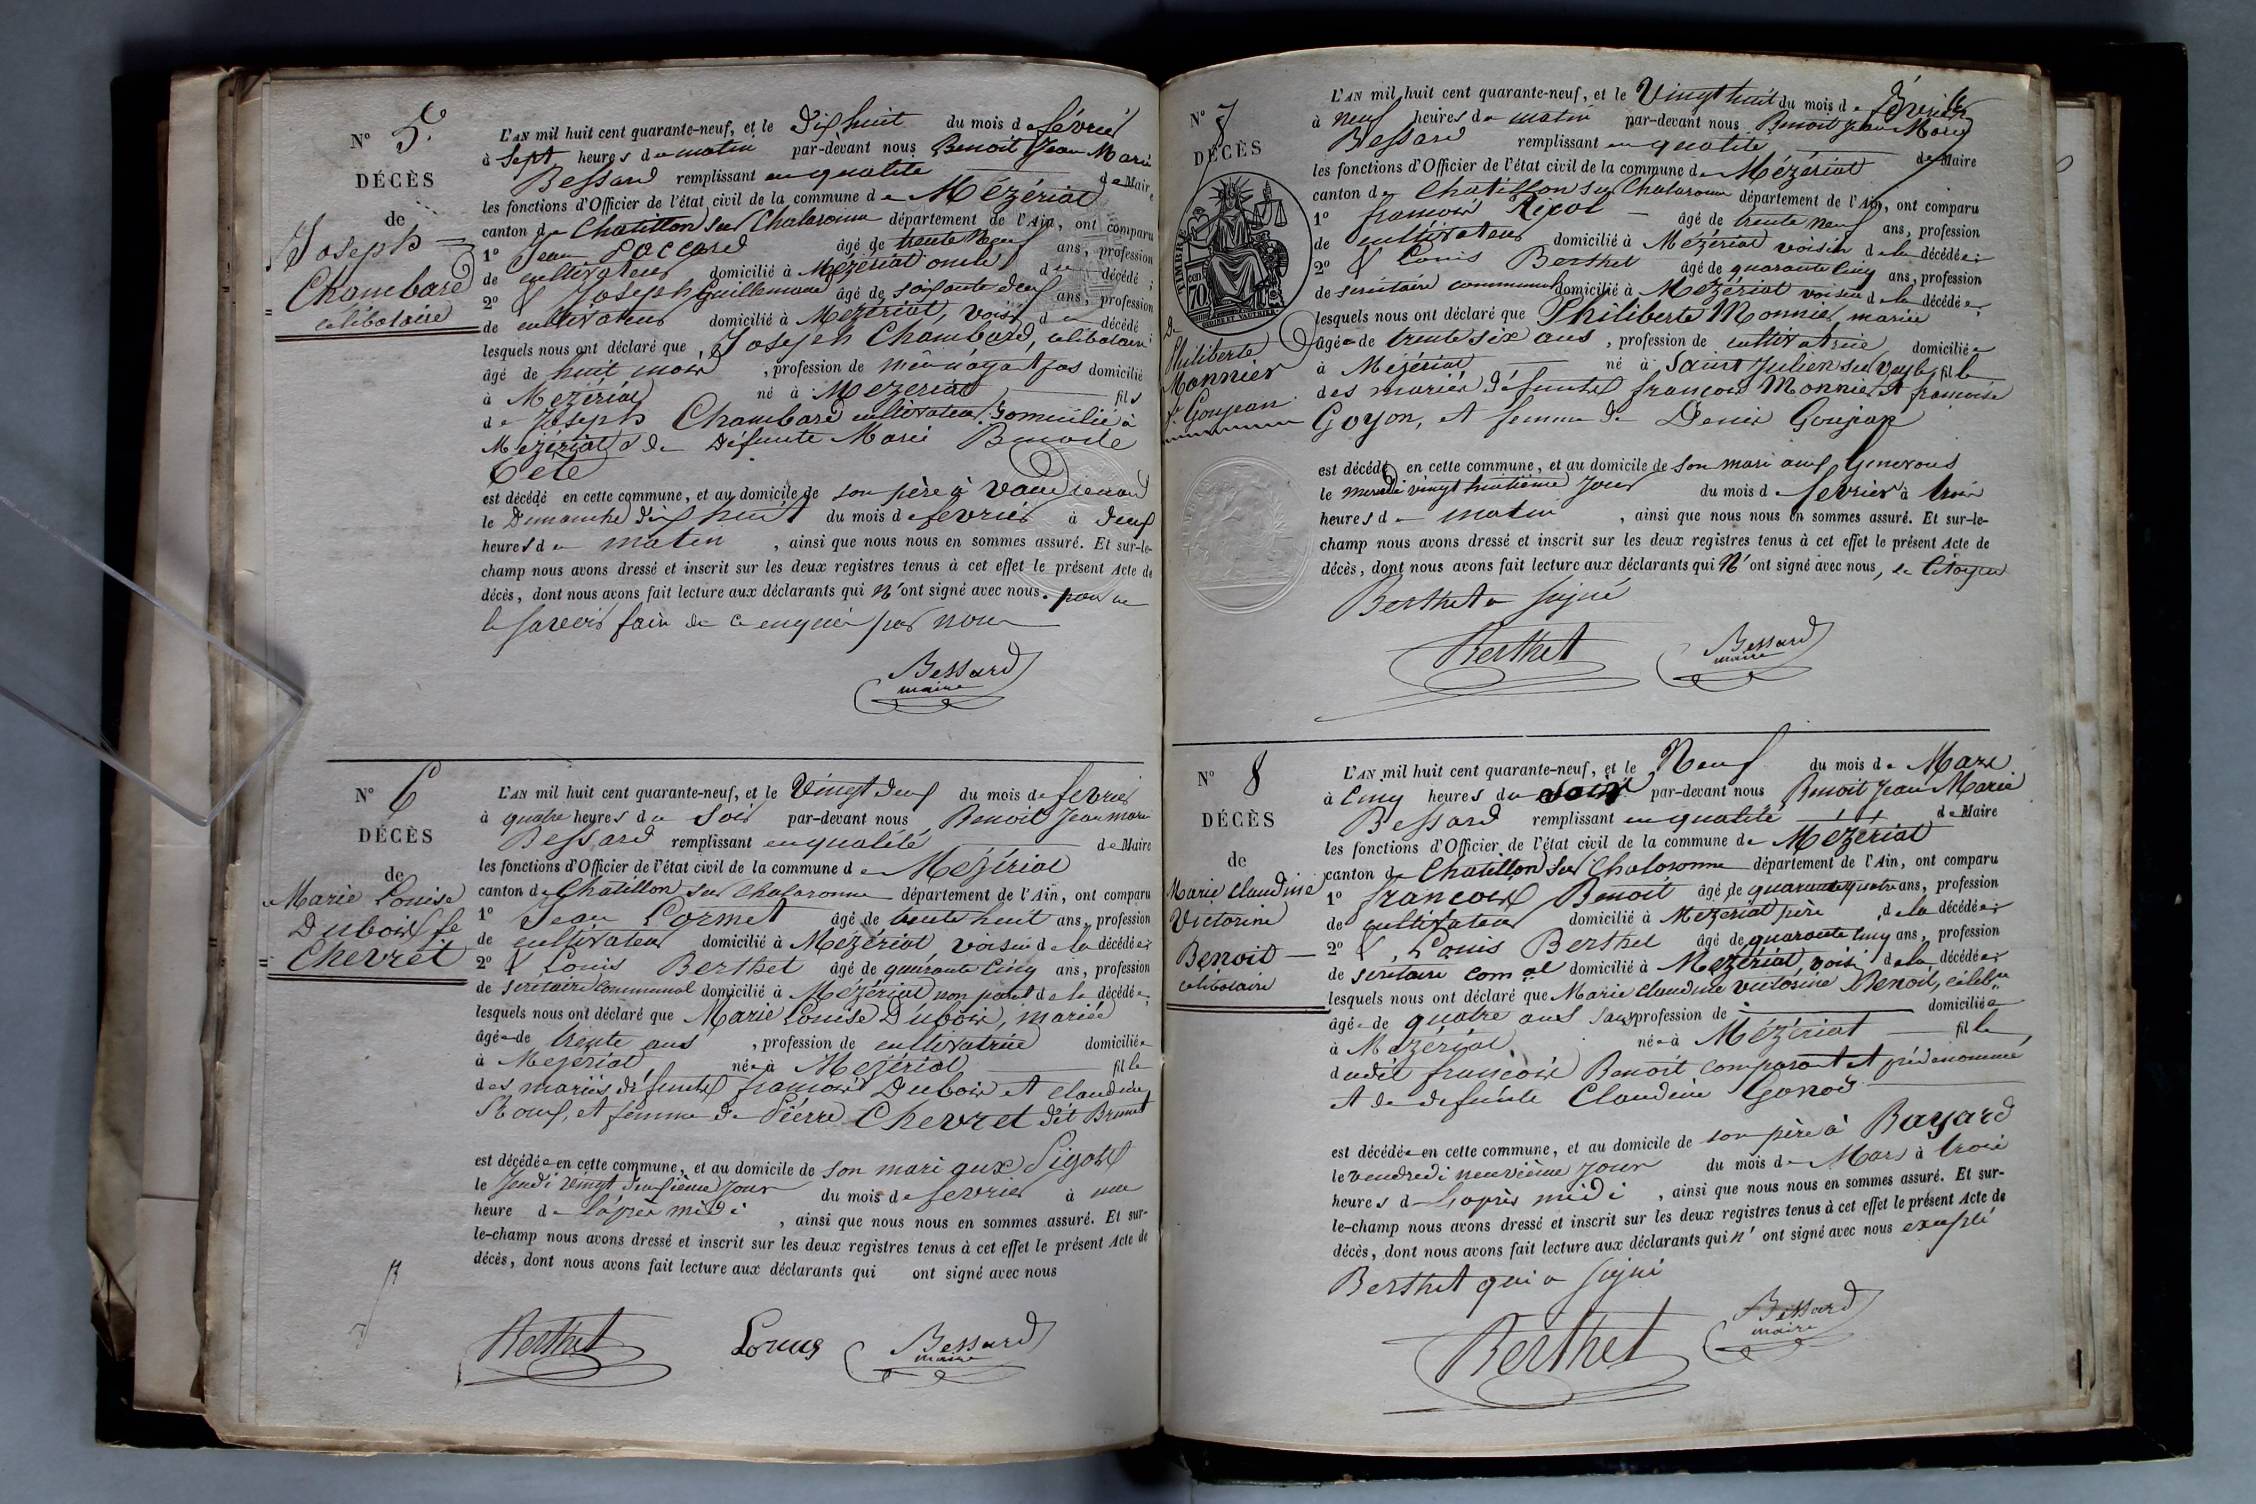 N° 5.
DÉCÈS
de
Joseph
Chambard
célibataire
L'AN mil huit cent quarante-neuf, et le dix huit du mois de février
à sept heures du matin par-devant nous Benoit Jean Marie
Bessard remplissant en qualité de Maire
les fonctions d'Officier de l'état civil de la commune de Mézériat
canton de Chatillon sur Chalaronne département de l'Ain, ont comparu
1° Jean Paccard âgé de trente neuf ans, profession
de cultivateur domicilié à Mézériat oncle du décédé;
2° & Joseph Guillemaud âgé de soixante deux ans, profession
de cultivateur domicilié à Mézériat, voisin du décédé
lesquels nous ont déclaré que Joseph Chambard, célibataire
âgé de huit mois, profession de n'en ayant pas domicilié
à Mézériat né à Mézériat fils
de Joseph Chambard cultivateur domicilié à
Mézériat & de défunte Marie Benoite
est décédé en cette commune, et au domicile de son père à
le Dimanche dix huit du mois de février à deux
heures du matin, ainsi que nous nous en sommes assuré. Et sur-le-
champ nous avons dressé et inscrit sur les deux registres tenus à cet effet le présent Acte de
décès, dont nous avons fait lecture aux déclarants qui n'ont signé avec nous. pour ne
le savoir faire de ce enquis par nous
Bessard
maire
N° 6
DÉCÈS
de
Marie Louise
Dubois fe
Chevret
L'AN mil huit cent quarante-neuf, et le Vingt deux du mois de février
à quatre heures du soir par-devant nous Benoit Jean marie
Bessard remplissant en qualité de Maire
les fonctions d'Officier de l'état civil de la commune de Mézériat
canton de Chatillon sur Chalaronne département de l'Ain, ont comparu
1° Jean Cormet âgé de trente huit ans, profession
de cultivateur domicilié à Mézériat voisin de la décédée;
2° & Louis Berthet âgé de quarante cinq ans, profession
de secrétaire communal domicilié à Mézériat non parent de la décédée,
lesquels nous ont déclaré que Marie Louise Dubois, mariée
âgée de trente ans, profession de cultivatrice domiciliée
à Mézériat née à Mézériat fille
des mariés défunts françois Dubois et claudine
et femme de Pierre Chevret dit Brunet
est décédée en cette commune, et au domicile de son mari aux
le Jeudi vingt deuxième jour du mois de février à une
heure de l'après midi, ainsi que nous nous en sommes assuré. Et sur-
le-champ nous avons dressé et inscrit sur les deux registres tenus à cet effet le présent Acte de
décès, dont nous avons fait lecture aux déclarants qui ont signé avec nous
Berthet Bessard
maire
N° 7
DÉCÈS
de
Philiberte
Monnier
fe Goujean
TIMBRE
70 cen
L'AN mil huit cent quarante-neuf, et le Vingt huit du mois de février
à neuf heures du matin par-devant nous Benoit Jean Marie
Bessard remplissant en qualité de Maire
les fonctions d'Officier de l'état civil de la commune de Mézériat
canton de Chatillon sur Chalaronne département de l'Ain, ont comparu
1° françois Rigol âgé de trente neuf ans, profession
de cultivateur domicilié à Mézériat voisin de la décédée;
2° & Louis Berthet âgé de quarante cinq ans, profession
de secrétaire communal domicilié à Mézériat voisin de la décédée,
lesquels nous ont déclaré que Philiberte Monnier mariée
âgée de trente six ans, profession de cultivatrice domiciliée
à Mézériat né à Saint Julien sur Veyle fille
des mariés défunts françois Monnier et françoise
Goyon, et femme de Denis Goujean
est décédé en cette commune, et au domicile de son mari aux Genevous
le mercredi vingt huitième jour du mois de février à trois
heures de matin, ainsi que nous nous en sommes assuré. Et sur-le-
champ nous avons dressé et inscrit sur les deux registres tenus à cet effet le présent Acte de
décès, dont nous avons fait lecture aux déclarants qui n'ont signé avec nous, le Citoyen
Berthet a signé
Berthet Bessard
maire
N° 8
DÉCÈS
de
Marie Claudine
Victorine
Benoit
célibataire
L'AN mil huit cent quarante-neuf, et le Neuf du mois de Mars
à Cinq heures du soir par-devant nous Benoit Jean Marie
Bessard remplissant en qualité de Maire
les fonctions d'Officier de l'état civil de la commune de Mézériat
canton de Chatillon sur Chalaronne département de l'Ain, ont comparu
1° françois Benoit âgé de quarante quatre ans, profession
de cultivateur domicilié à Mézériat père de la décédée;
2° & Louis Berthet âgé de quarante cinq ans, profession
de secrétaire com al domicilié à Mézériat voisin de la décédée;
lesquels nous ont déclaré que Marie claudine victorine Benoit, célib re
âgée de quatre ans sans profession de domiciliée
à Mézériat née à Mézériat fille
dudit françois Benoit comparant et prédénommé
et de defunte Claudine Gonod
est décédée en cette commune, et au domicile de son père à Bayard
le vendredi neuvième jour du mois de Mars à trois
heures de l'après midi, ainsi que nous nous en sommes assuré. Et sur-
le-champ nous avons dressé et inscrit sur les deux registres tenus à cet effet le présent Acte de
décès, dont nous avons fait lecture aux déclarants qui n'ont signé avec nous excepté
Berthet qui a signé
Berthet Bessard
maire